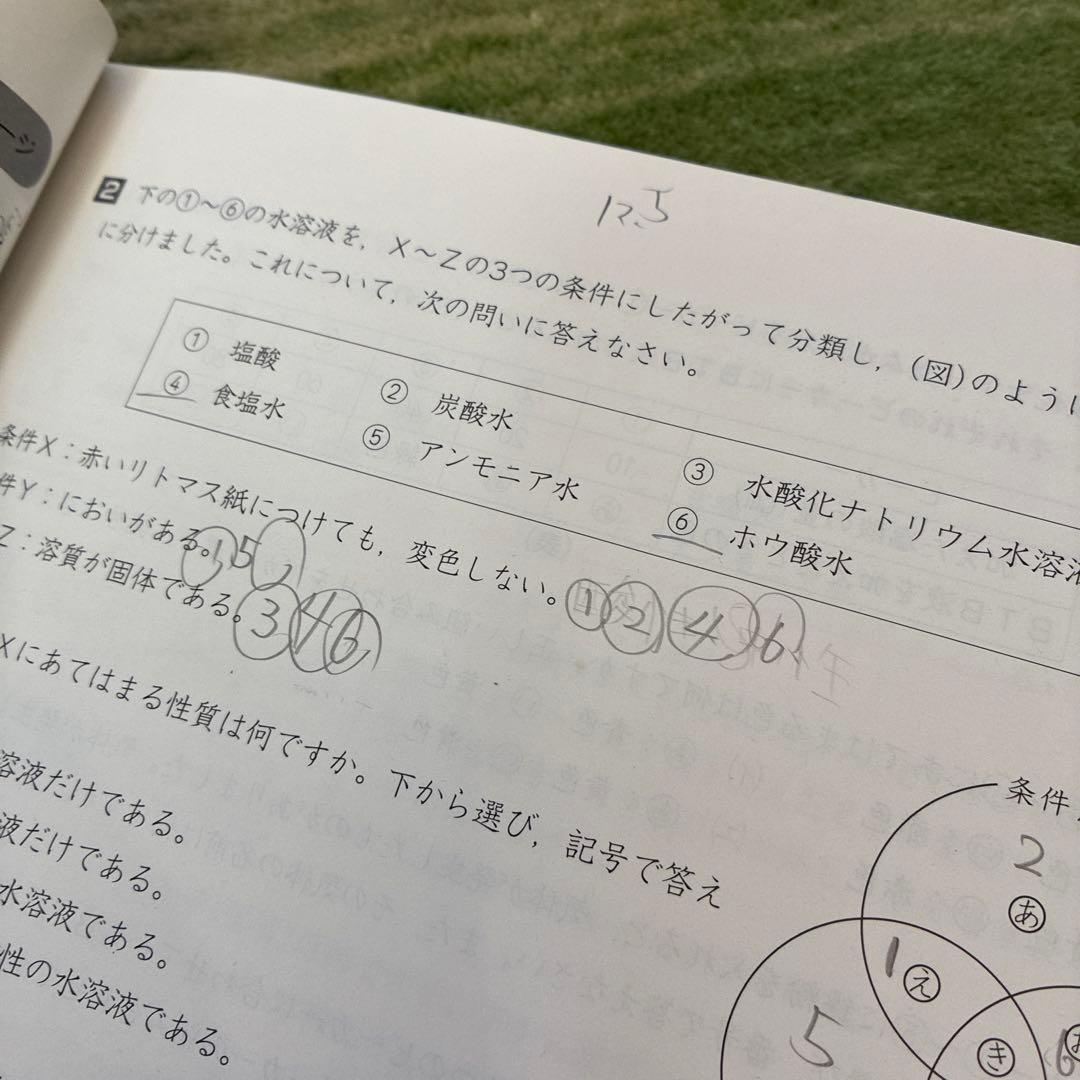 ージ
12.5
2 下の①～⑥の水溶液を，X～Zの3つの条件にしたがって分類し，(図)のように
に分けました。これについて，次の問いに答えなさい。
① 塩酸 ② 炭酸水 ③ 水酸化ナトリウム水溶液
④ 食塩水 ⑤ アンモニア水 ⑥ ホウ酸水
条件X：赤いリトマス紙につけても，変色しない。① ② ④ 6
件Y：においがある。1 5
Z：溶質が固体である。③ 4 6
Xにあてはまる性質は何ですか。下から選び，記号で答え
溶液だけである。
液だけである。
水溶液である。
性の水溶液である。
条件
2
あ
1 え
5
き 6